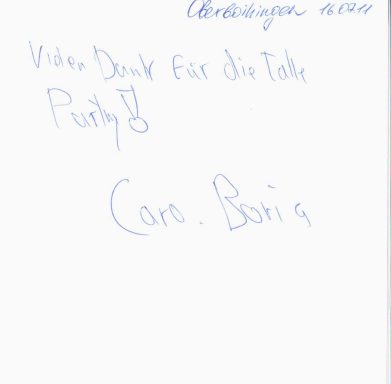 Oberboihingen 16.07.11
Vielen Dank für die Tolle
Party!
Caro. Boris